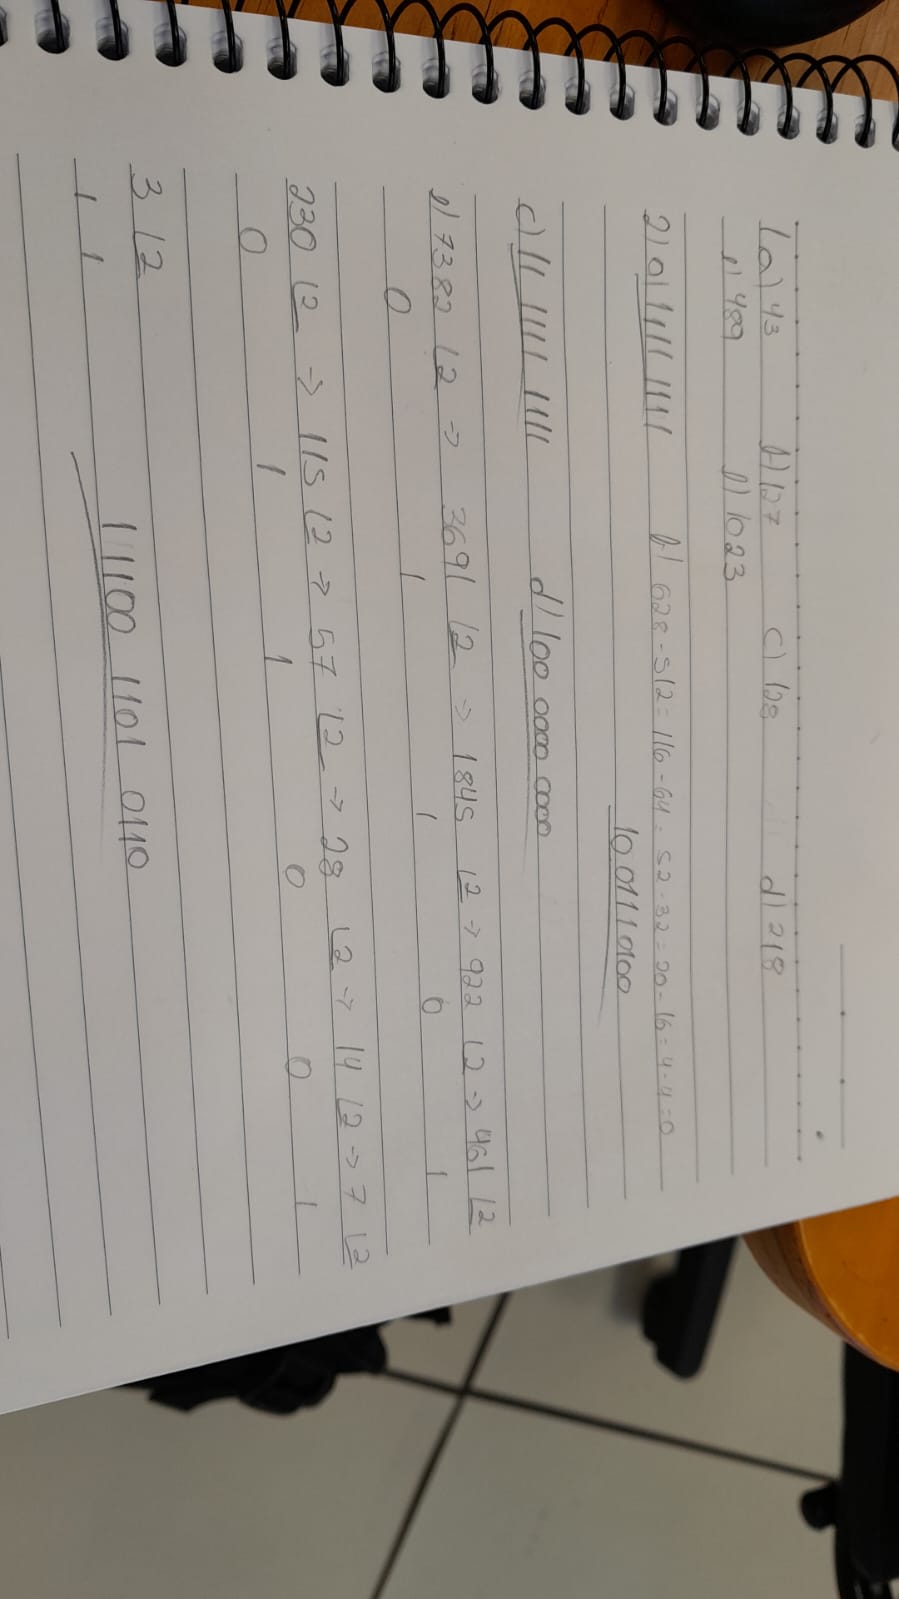 1a) 43 b) 127 c) 128 d) 218
e) 489 f) 1023
2) a) 1111 1111 b) 628-512= 116-64= 52-32=20-16=4-4=0
1001110100
c) 11 1111 1111 d) 100 0000 0000
e) 7382 2 → 3691 2 → 1845 2 → 922 2 → 461 2
0 1 1 0 1
230 2 → 115 2 → 57 2 → 28 2 → 14 2 → 7 2
0 1 1 0 0 1
3 2
1 1
11100 1101 0110